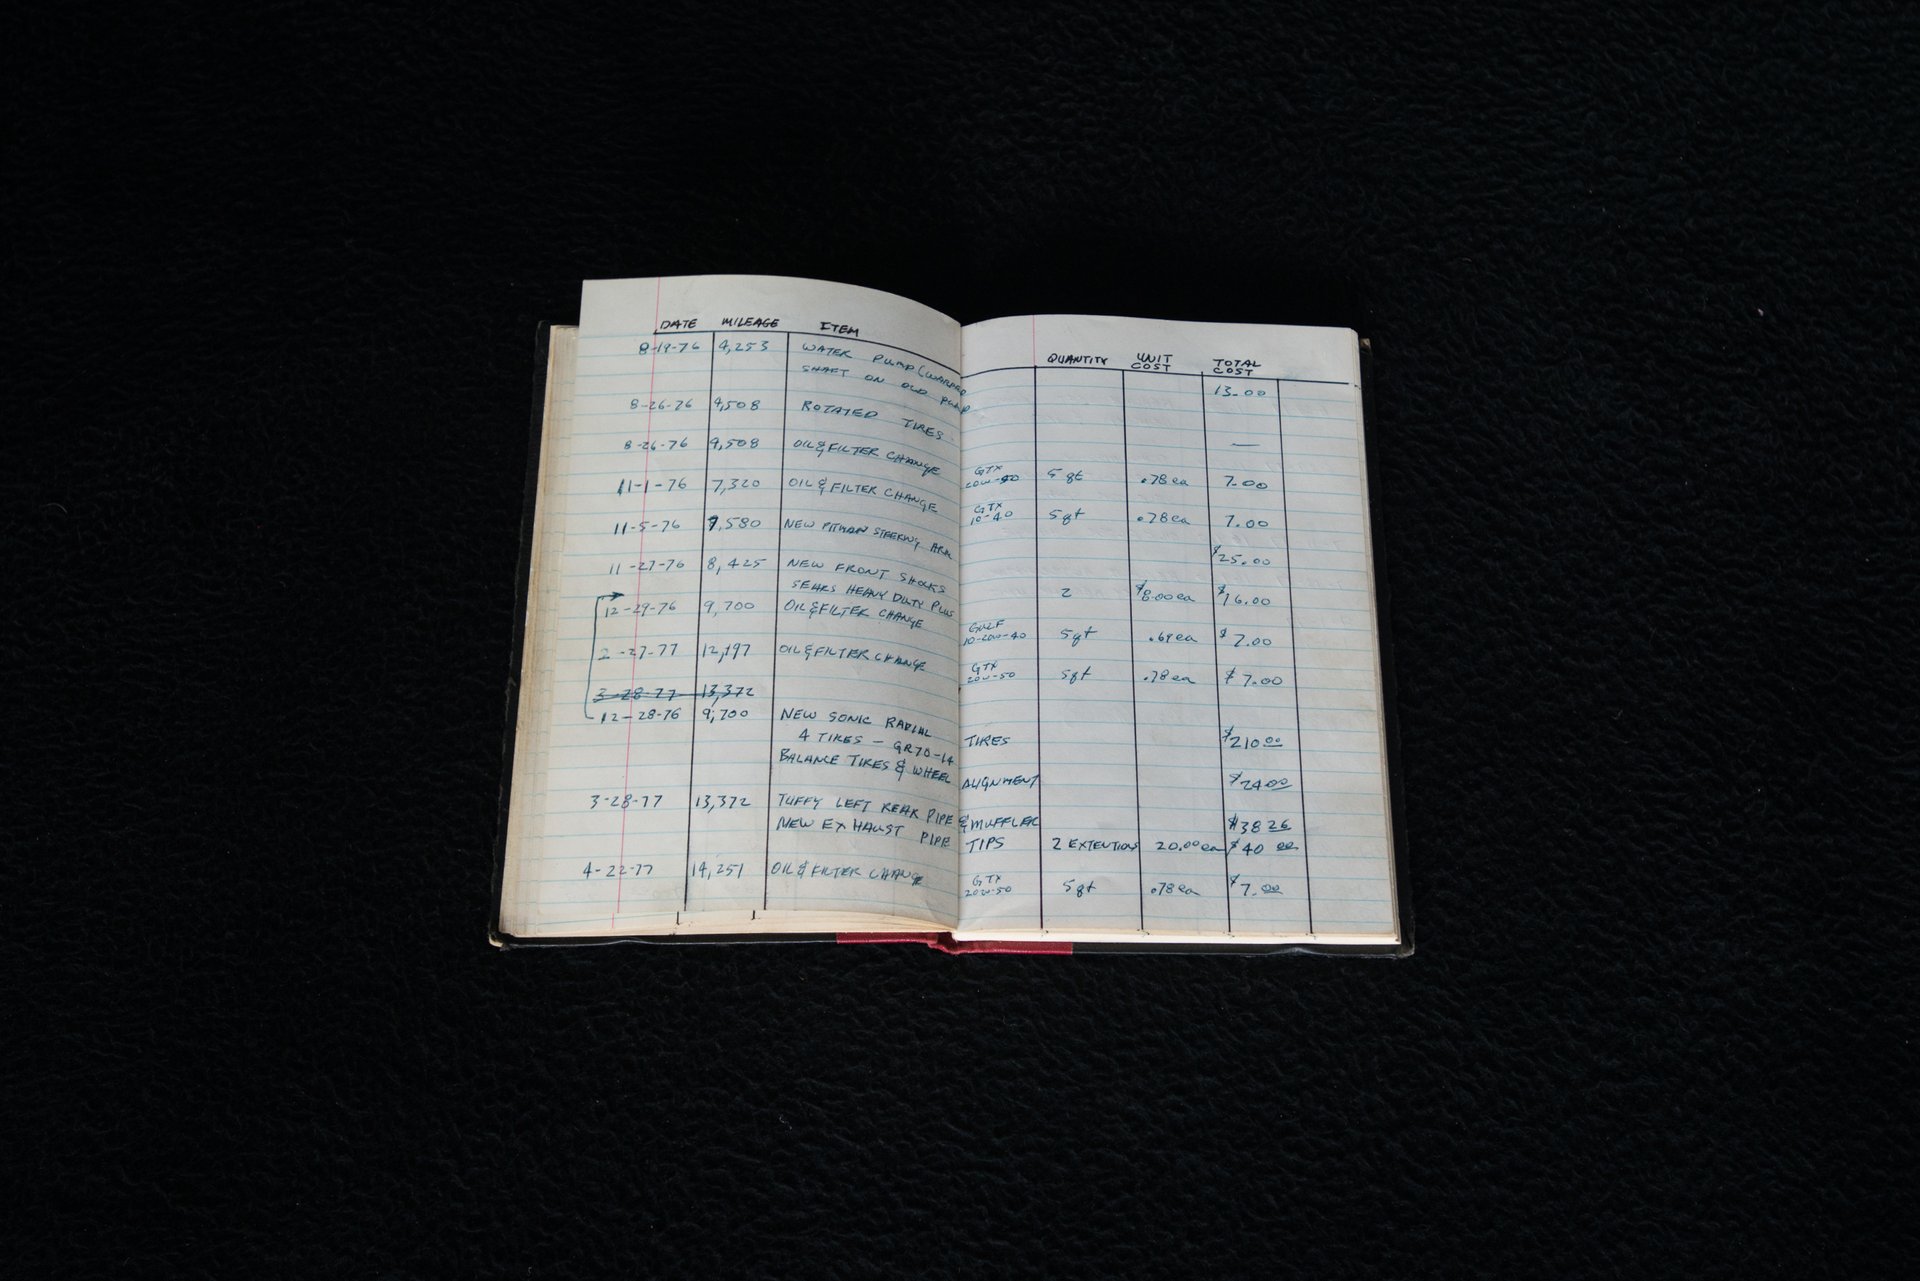 DATE MILEAGE ITEM QUANTITY UNIT COST TOTAL COST
8-19-76 4,253 WATER PUMP (WARPED 13.00
SHAFT ON OLD PUMP
8-26-76 4,508 ROTATED TIRES. —
8-26-76 4,508 OIL & FILTER CHANGE GTX 20W-50 5 qt .78 ea 7.00
11-1-76 7,320 OIL & FILTER CHANGE GTX 10-40 5 qt .78 ea 7.00
11-5-76 7,580 NEW PITMAN STEERING ARM $25.00
11-27-76 8,425 NEW FRONT SHOCKS
SEARS HEAVY DUTY PLUS 2 $8.00 ea $16.00
12-29-76 9,700 OIL & FILTER CHANGE GULF 10-20W-40 5 qt .69 ea $7.00
2-27-77 12,197 OIL & FILTER CHANGE GTX 20W-50 5 qt .78 ea $7.00
3-28-77 13,372
12-28-76 9,700 NEW SONIC RADIAL
4 TIRES - GR70-14 TIRES $210.00
BALANCE TIRES & WHEEL ALIGNMENT $24.00
3-28-77 13,372 TUFFY LEFT REAR PIPE & MUFFLER $38.26
NEW EXHAUST PIPE TIPS 2 EXTENTIONS 20.00 ea $40.00
4-22-77 14,251 OIL & FILTER CHANGE GTX 20W-50 5 qt .78 ea $7.00